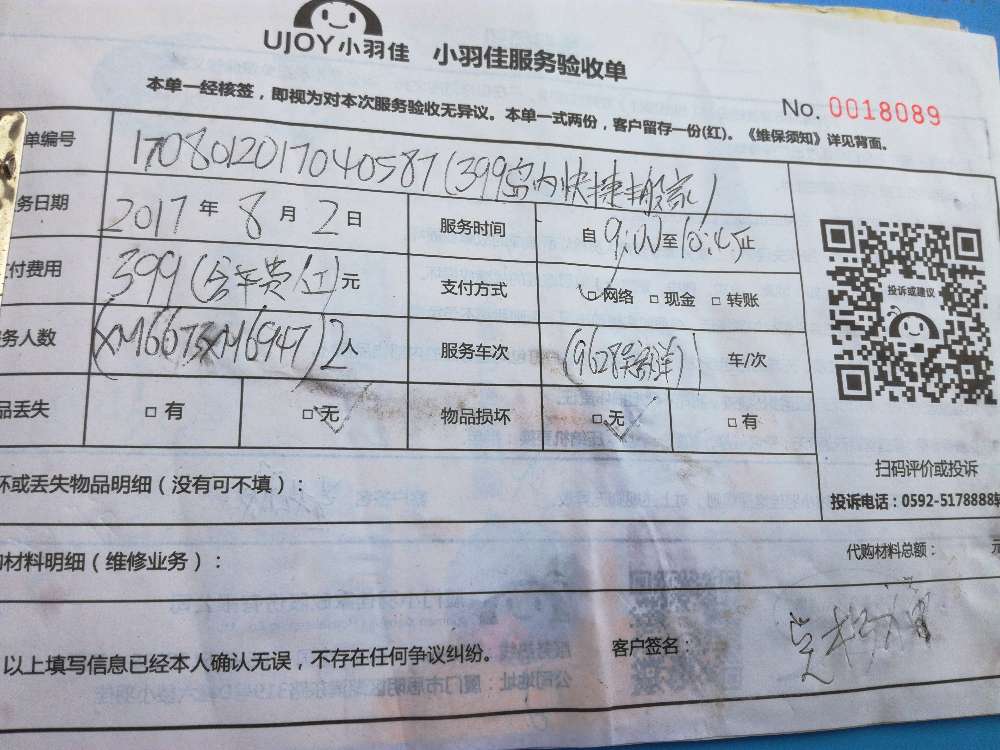 UJOY小羽佳 小羽佳服务验收单
No. 0018089
本单一经核签，即视为对本次服务验收无异议。本单一式两份，客户留存一份(红)。《维保须知》详见背面。
单编号 1708012017040587(399岛内快捷搬家)
务日期 2017年8月2日 服务时间 自 至 止
付费用 399(含车费/红)元 支付方式 网络 □现金 □转账
务人数 (XM6673XM6947)2人 服务车次 (9628 洋) 车/次
品丢失 □有 □无 物品损坏 □无 □有
投诉或建议
扫码评价或投诉
投诉电话：0592-5178888转
坏或丢失物品明细（没有可不填）：
购材料明细（维修业务）： 代购材料总额： 元
以上填写信息已经本人确认无误，不存在任何争议纠纷。 客户签名：